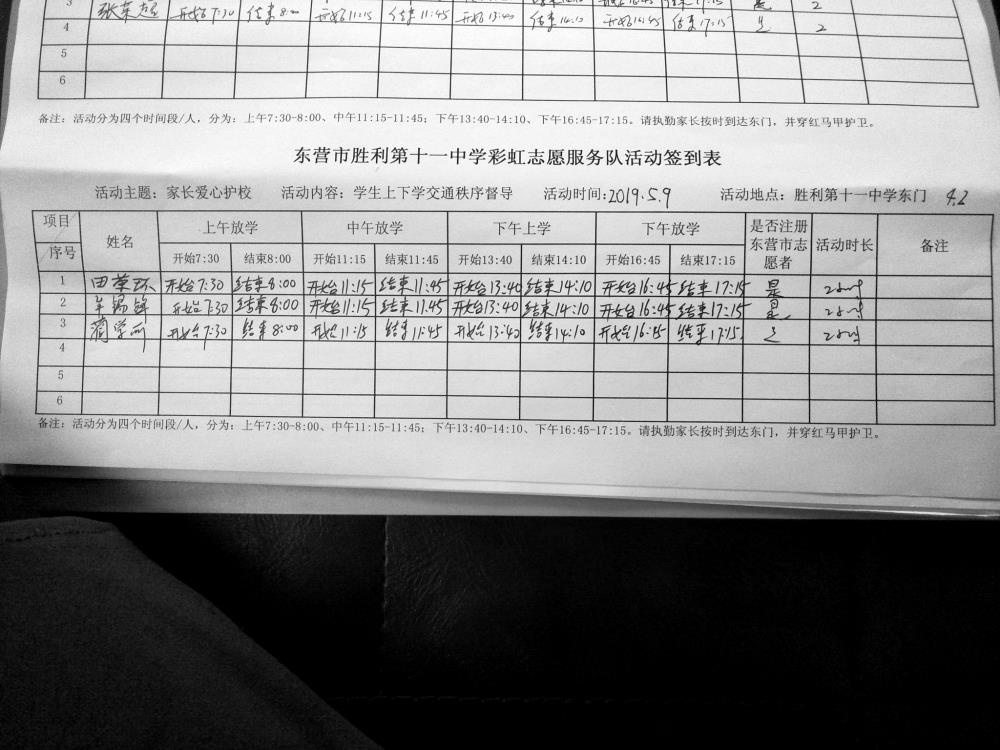 3 张荣超 开始7:30 结束8:00 开始11:15 结束11:45 开始13:40 结束14:10 开始16:45 结束17:15 是 2
4
5
6
备注：活动分为四个时间段/人，分为：上午7:30-8:00、中午11:15-11:45；下午13:40-14:10、下午16:45-17:15。请执勤家长按时到达东门，并穿红马甲护卫。
东营市胜利第十一中学彩虹志愿服务队活动签到表
活动主题：家长爱心护校 活动内容：学生上下学交通秩序督导 活动时间：2019.5.9 活动地点：胜利第十一中学东门 4.2
项目 序号 姓名 上午放学 中午放学 下午上学 下午放学 是否注册东营市志愿者 活动时长 备注
开始7:30 结束8:00 开始11:15 结束11:45 开始13:40 结束14:10 开始16:45 结束17:15
1 田 开始7:30 结束8:00 开始11:15 结束11:45 开始13:40 结束14:10 开始16:45 结束17:15 是 2小时
2 开始7:30 结束8:00 开始11:15 结束11.45 开始13:40 结束14:10 开始16:45 结束17:15 是 2小时
3 开始7:30 结束8:00 开始11:15 结束11:45 开始13:40 结束14:10 开始16:45 结束17:15 2小时
4
5
6
备注：活动分为四个时间段/人，分为：上午7:30-8:00、中午11:15-11:45；下午13:40-14:10、下午16:45-17:15。请执勤家长按时到达东门，并穿红马甲护卫。